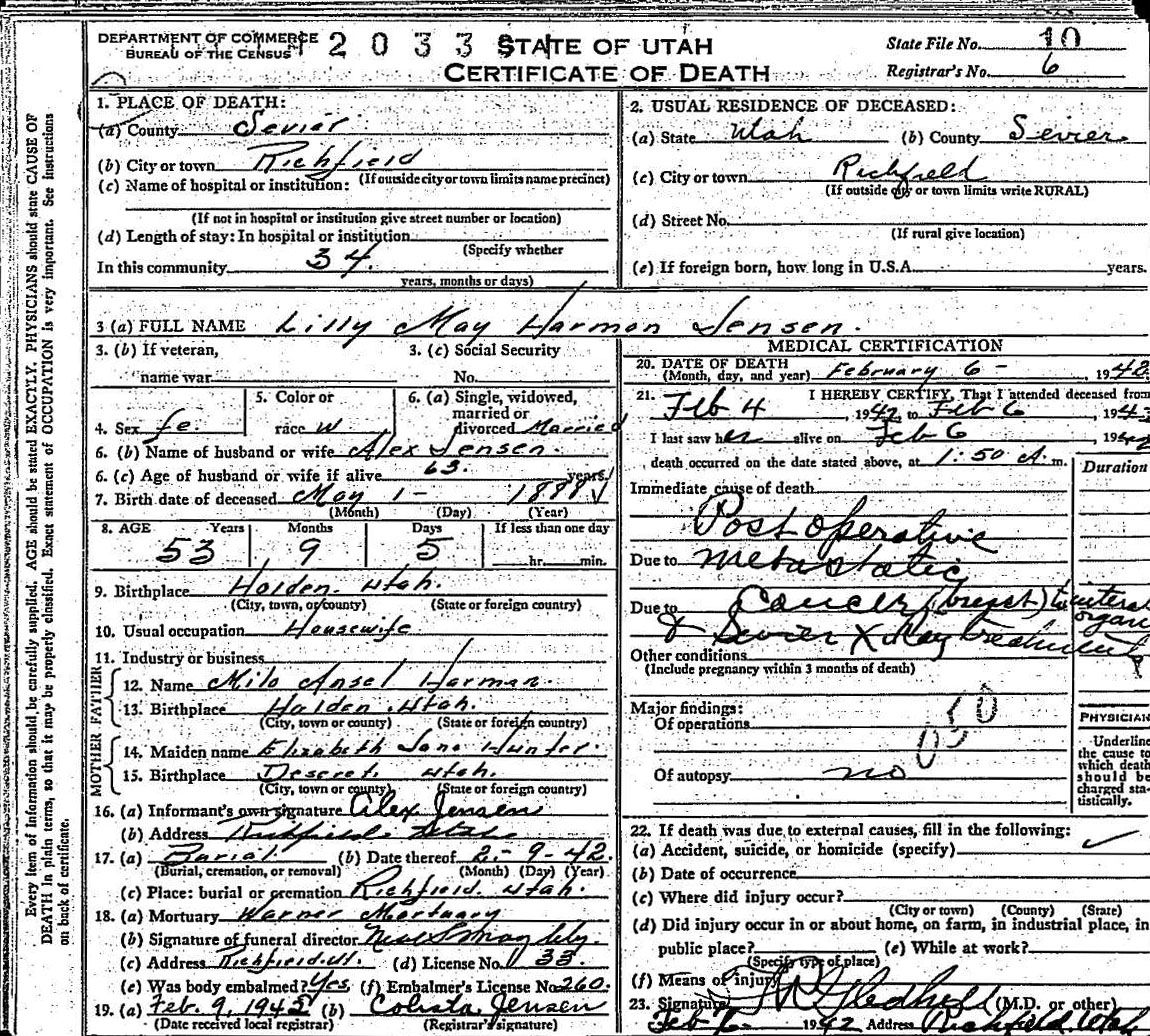 DEPARTMENT OF COMMERCE
BUREAU OF THE CENSUS
2033
STATE OF UTAH
CERTIFICATE OF DEATH
State File No. 10
Registrar's No. 6
1. PLACE OF DEATH:
(a) County Sevier
(b) City or town Richfield
(If outside city or town limits name precinct)
(c) Name of hospital or institution:
(If not in hospital or institution give street number or location)
(d) Length of stay: In hospital or institution
(Specify whether
In this community 34
years, months or days)
2. USUAL RESIDENCE OF DECEASED:
(a) State Utah (b) County Sevier
(c) City or town Richfield
(If outside city or town limits write RURAL)
(d) Street No.
(If rural give location)
(e) If foreign born, how long in U.S.A. years.
3 (a) FULL NAME Lilly May Harmon Jensen.
3. (b) If veteran,
name war
3. (c) Social Security
No.
4. Sex fe.
5. Color or
race w
6. (a) Single, widowed,
married or
divorced Married
6. (b) Name of husband or wife Alex Jensen.
6. (c) Age of husband or wife if alive 63. years
7. Birth date of deceased May 1 - 1888
(Month) (Day) (Year)
8. AGE Years Months Days If less than one day
53 9 5 hr. min.
9. Birthplace Holden. Utah.
(City, town, or county) (State or foreign country)
10. Usual occupation Housewife
11. Industry or business
FATHER
12. Name Milo Ansel Harmon.
13. Birthplace Holden. Utah.
(City, town or county) (State or foreign country)
MOTHER
14. Maiden name Elizabeth Jane Hunter.
15. Birthplace Deseret. Utah.
(City, town or county) (State or foreign country)
16. (a) Informant's own signature Alex Jensen
(b) Address Richfield Utah
17. (a) Burial (b) Date thereof 2-9-42.
(Burial, cremation, or removal) (Month) (Day) (Year)
(c) Place: burial or cremation Richfield. Utah.
18. (a) Mortuary Warner Mortuary
(b) Signature of funeral director
(c) Address Richfield. Ut. (d) License No. 33.
(e) Was body embalmed? Yes (f) Embalmer's License No. 260.
19. (a) Feb. 9, 1942 (b) Colista Jensen
(Date received local registrar) (Registrar's signature)
MEDICAL CERTIFICATION
20. DATE OF DEATH
(Month, day, and year) February 6 - , 1942.
21. I HEREBY CERTIFY, That I attended deceased from
Feb 4 , 1942 to Feb 6 , 1942
I last saw her alive on Feb 6 , 1942
death occurred on the date stated above, at 1:50 A. m.
Duration
Immediate cause of death
Post operative
Due to metastatic
Due to Cancer (breast) to
organs
& Sevier X Ray treatment
Other conditions
(Include pregnancy within 3 months of death)
Major findings:
Of operations
050
Of autopsy no
PHYSICIAN
Underline
the cause to
which death
should be
charged sta-
tistically.
22. If death was due to external causes, fill in the following:
(a) Accident, suicide, or homicide (specify)
(b) Date of occurrence
(c) Where did injury occur?
(City or town) (County) (State)
(d) Did injury occur in or about home, on farm, in industrial place, in
public place? (e) While at work?
(Specify type of place)
(f) Means of injury
23. Signature Gledhill (M.D. or other)
Feb 6 1942 Address Richfield Utah
Every item of information should be carefully supplied. AGE should be stated EXACTLY. PHYSICIANS should state CAUSE OF
DEATH in plain terms, so that it may be properly classified. Exact statement of OCCUPATION is very important. See instructions
on back of certificate.